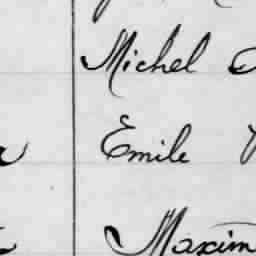 Michel
Emile
Maxim